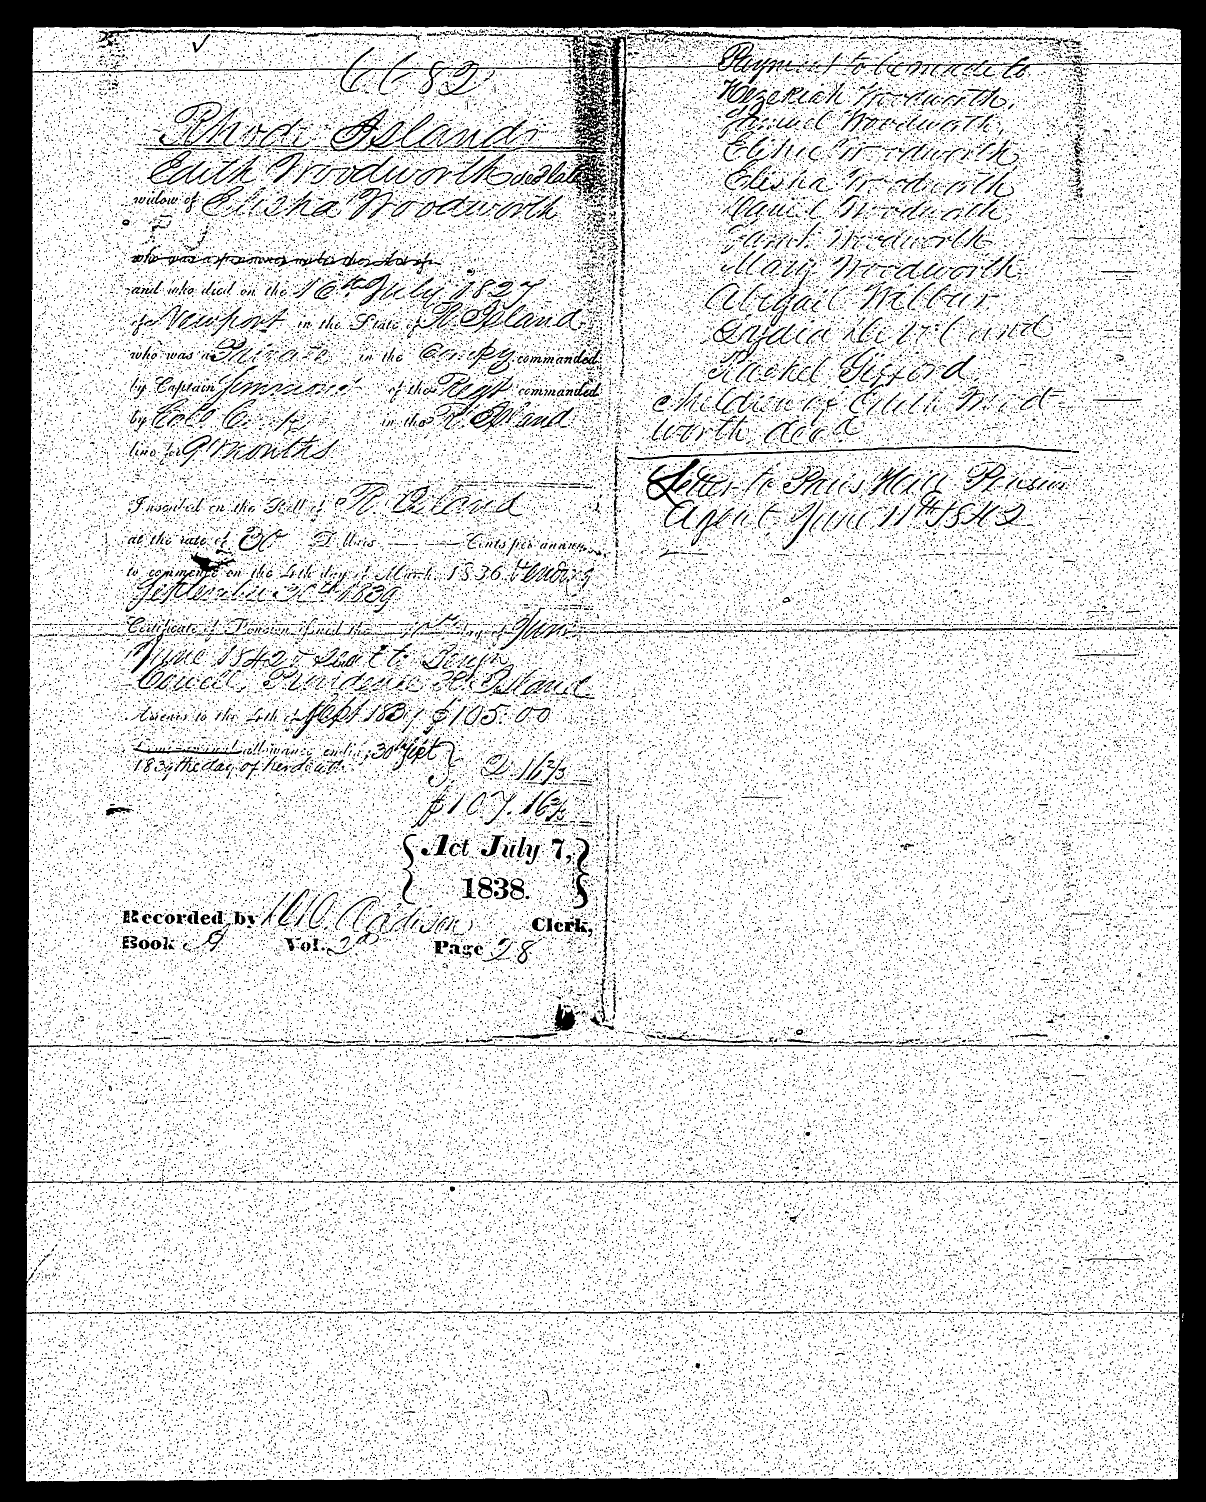 6682
Rhode Island
Edith Woodworth dec'd late
widow of Elisha Woodworth
who was a pensioner under the Act of
and who died on the 16th July 1827
of Newport in the State of R. Island
who was a Private in the Comp'y commanded
by Captain Simmons of the Regt commanded
by Col. in the R. Island
line for 9 months
Inscribed on the Roll of R. Island
at the rate of 30 Dollars Cents per annum,
to commence on the 4th day of March, 1836 & ending
September 30th 1839
Certificate of Pension issued the day of June
June 1842 & sent to Benjn
Cowell, Providence R. Island
Arrears to the 4th of Sept 1839 $105.00
Semi-annual allowance ending 30th Sept
1839 the day of her death 2.16 2/3
$107.16 2/3
Act July 7,
1838.
Recorded by Addison Clerk,
Book Vol. 2d Page 28
Payment to be made to
Hezekiah Woodworth,
Samuel Woodworth,
Elihu Woodworth
Elisha Woodworth
Daniel Woodworth
Sarah Woodworth
Mary Woodworth
Abigail Wilbur
Lydia
Rachel Gifford
children of Edith Wood-
worth dec'd
Letter to Paris Pension
Agent. June 11th 1842